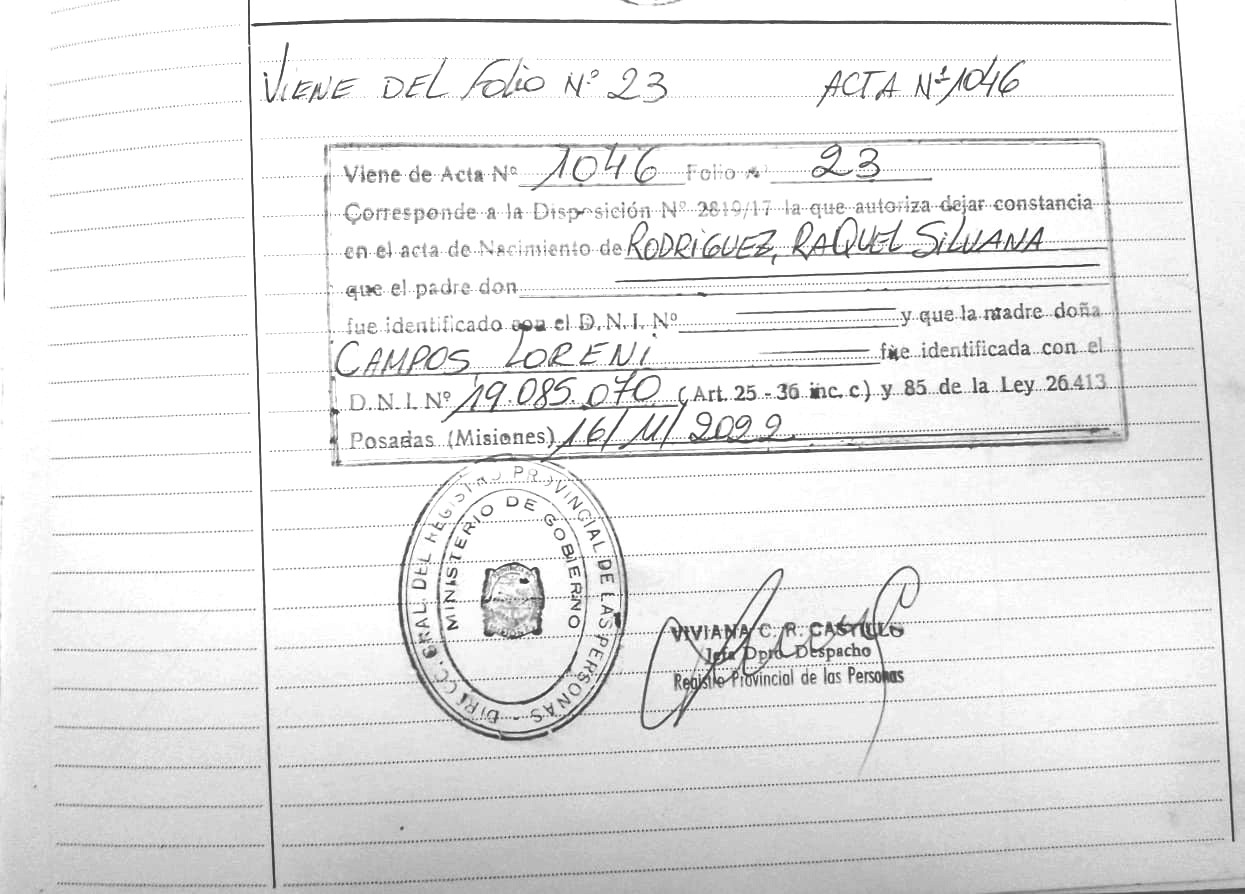 VIENE DEL Folio N° 23 ACTA N° 1046
Viene de Acta N° 1046 Folio N° 23
Corresponde a la Disposición N° 2819/17 la que autoriza dejar constancia
en el acta de Nacimiento de RODRIGUEZ, RAQUEL SILVANA
que el padre don
fue identificado con el D.N.I. N° y que la madre doña
CAMPOS, LORENI fue identificada con el
D.N.I. N° 19.085.070 (Art. 25 - 36 inc. c) y 85 de la Ley 26.413
Posadas (Misiones) 16/11/2022.
DIRECC. GRAL. DEL REGISTRO PROVINCIAL DE LAS PERSONAS -
MINISTERIO DE GOBIERNO
VIVIANA C. R. CASTILLO
Jefa Dpto. Despacho
Registro Provincial de las Personas